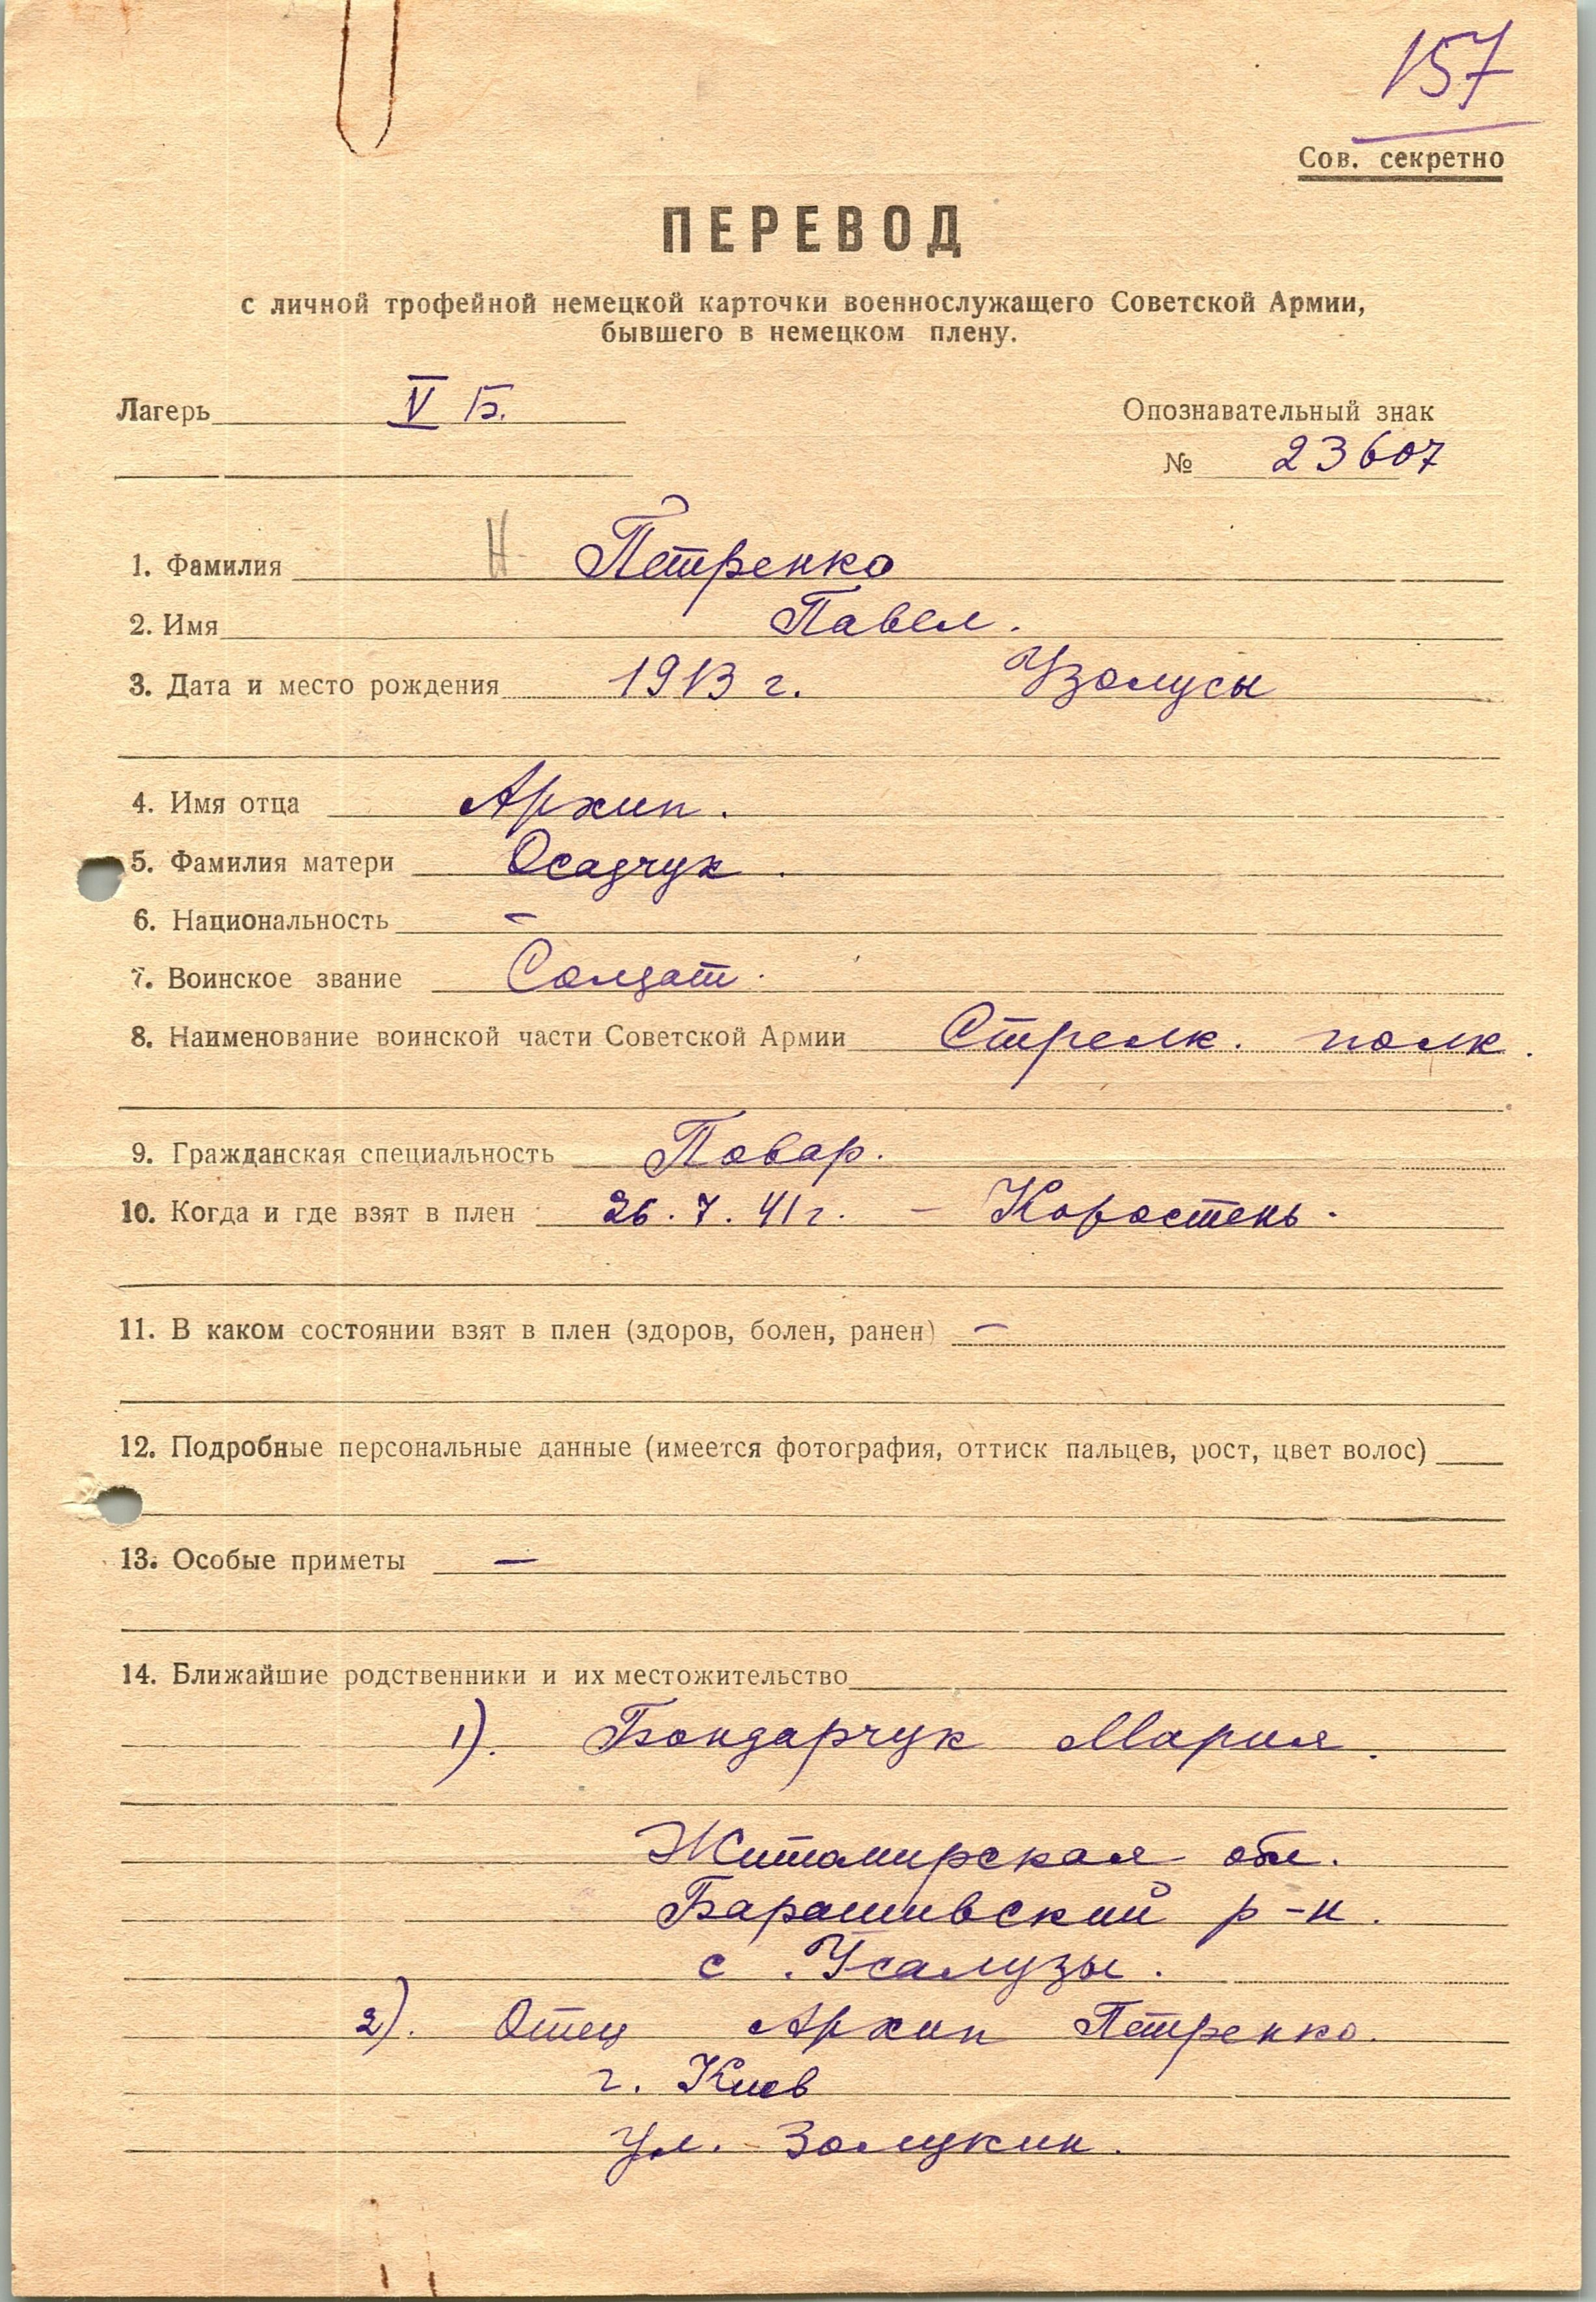 157
Сов. секретно
ПЕРЕВОД
с личной трофейной немецкой карточки военнослужащего Советской Армии,
бывшего в немецком плену.
Лагерь V Б.
Опознавательный знак
№ 23607
Н
1. Фамилия Петренко
2. Имя Павел.
3. Дата и место рождения 1913 г. Узолусы
4. Имя отца Архип.
5. Фамилия матери Осадчук.
6. Национальность –
7. Воинское звание Солдат.
8. Наименование воинской части Советской Армии Стрелк. полк.
9. Гражданская специальность Повар.
10. Когда и где взят в плен 26.7.41 г. – Коростень.
11. В каком состоянии взят в плен (здоров, болен, ранен) –
12. Подробные персональные данные (имеется фотография, оттиск пальцев, рост, цвет волос)
13. Особые приметы –
14. Ближайшие родственники и их местожительство
1). Бондарчук Мария.
Житомирская обл.
Барашивский р-н.
с. Усалузы.
2). Отец Архип Петренко.
г. Киев
ул. Золукин.